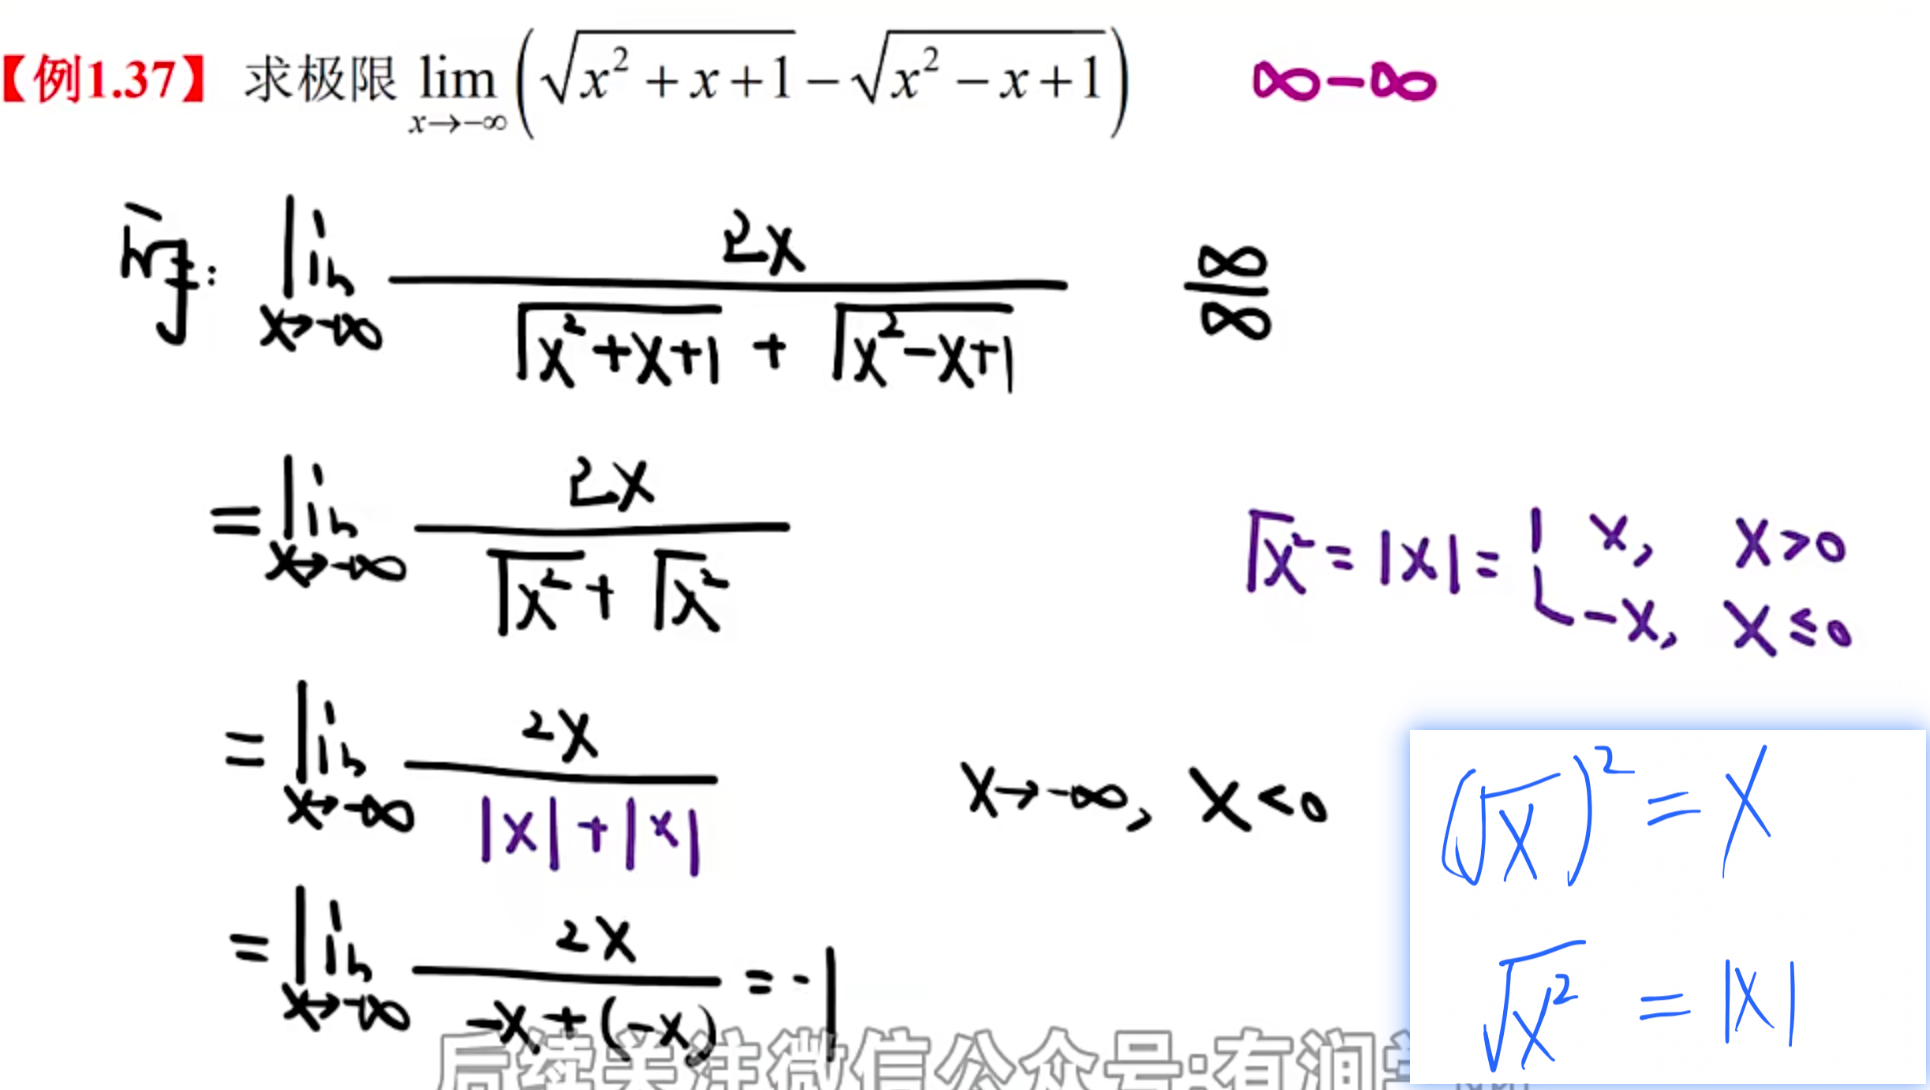 【例1.37】 求极限 lim x→-∞ (√(x² + x + 1) − √(x² − x + 1)) ∞-∞
原式: lim x→-∞ 2x / (√(x²+x+1) + √(x²-x+1)) ∞/∞
= lim x→-∞ 2x / (√x² + √x²)
√x² = |x| = { x, x>0
-x, x≤0
= lim x→-∞ 2x / (|x|+|x|) x→-∞, x<0
= lim x→-∞ 2x / (-x+(-x)) = -1
(√x)² = x
√x² = |x|
后续关注微信公众号:有润